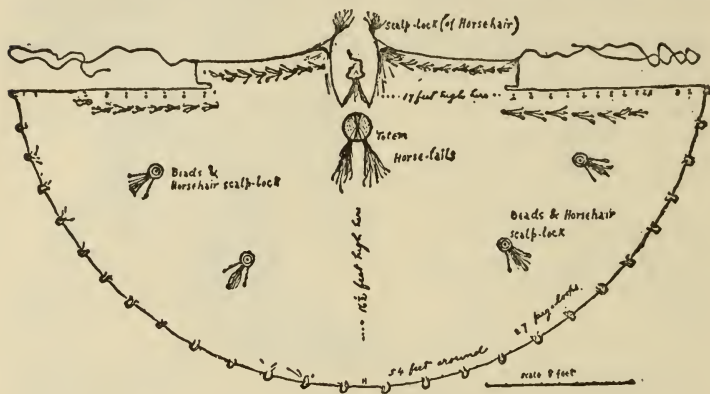 scalp-lock (of Horsehair)
17 feet high here
Totem
Horse-tails
Beads &
Horsehair scalp-lock
Beads & Horsehair
scalp-lock
feet high here
27 peg-loops.
54 feet around
scale 8 feet